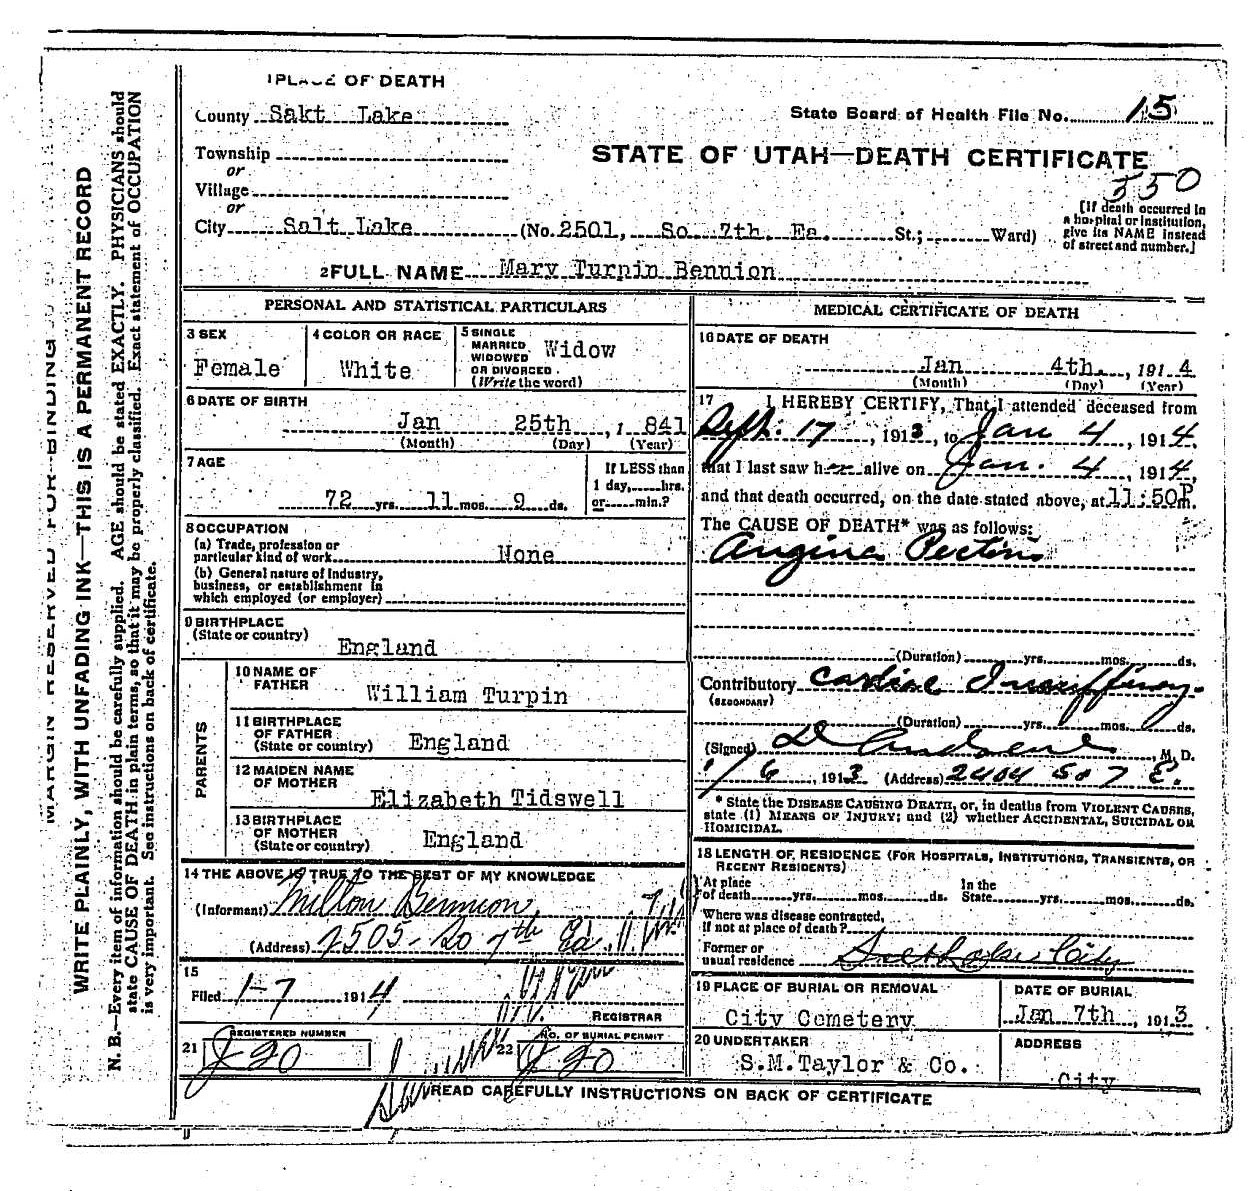 1 PLACE OF DEATH
County Sakt Lake
State Board of Health File No. 15
Township
or
STATE OF UTAH—DEATH CERTIFICATE
Village
or
350
City Salt Lake (No. 2501, So 7th Ea. St.; Ward)
[If death occurred in
a hospital or institution,
give its NAME instead
of street and number.]
2 FULL NAME Mary Turpin Bennion
PERSONAL AND STATISTICAL PARTICULARS
3 SEX
Female
4 COLOR OR RACE
White
5 SINGLE
MARRIED
WIDOWED
OR DIVORCED
(Write the word)
Widow
6 DATE OF BIRTH
Jan 25th, 1 841
(Month) (Day) (Year)
7 AGE
72 yrs. 11 mos. 9 ds.
If LESS than
1 day, hrs.
or min.?
8 OCCUPATION
(a) Trade, profession or
particular kind of work None
(b) General nature of Industry,
business, or establishment in
which employed (or employer)
9 BIRTHPLACE
(State or country)
England
PARENTS
10 NAME OF
FATHER
William Turpin
11 BIRTHPLACE
OF FATHER
(State or country) England
12 MAIDEN NAME
OF MOTHER
Elizabeth Tidswell
13 BIRTHPLACE
OF MOTHER
(State or country) England
14 THE ABOVE IS TRUE TO THE BEST OF MY KNOWLEDGE
(Informant) Milton Bennion
(Address) 2505 - So 7th Ea.
15
Filed 1-7 1914
REGISTRAR
21 REGISTERED NUMBER
J 20
22 NO. OF BURIAL PERMIT
J 20
MEDICAL CERTIFICATE OF DEATH
16 DATE OF DEATH
Jan 4th., 191 4
(Month) (Day) (Year)
17 I HEREBY CERTIFY, That I attended deceased from
Sept. 17, 1913, to Jan 4, 1914.
that I last saw her alive on Jan. 4, 1914,
and that death occurred, on the date stated above, at 11:50P m.
The CAUSE OF DEATH* was as follows:
Angina Pectoris
(Duration) yrs. mos. ds.
Contributory Cardiac Insufficiency
(SECONDARY)
(Duration) yrs. mos. ds.
(Signed) M. D.
1/6, 1913 (Address) 2404 So 7 E.
* State the DISEASE CAUSING DEATH, or, in deaths from VIOLENT CAUSES,
state (1) MEANS OF INJURY; and (2) whether ACCIDENTAL, SUICIDAL OR
HOMICIDAL.
18 LENGTH OF RESIDENCE (FOR HOSPITALS, INSTITUTIONS, TRANSIENTS, OR
RECENT RESIDENTS)
At place
of death yrs. mos. ds.
In the
State yrs. mos. ds.
Where was disease contracted,
If not at place of death?
Former or
usual residence Salt Lake City
19 PLACE OF BURIAL OR REMOVAL
City Cemetery
DATE OF BURIAL
Jan 7th, 1913
20 UNDERTAKER
S.M.Taylor & Co.
ADDRESS
City
READ CAREFULLY INSTRUCTIONS ON BACK OF CERTIFICATE
MARGIN RESERVED FOR BINDING
WRITE PLAINLY, WITH UNFADING INK—THIS IS A PERMANENT RECORD
N. B.—Every item of information should be carefully supplied. AGE should be stated EXACTLY. PHYSICIANS should
state CAUSE OF DEATH in plain terms, so that it may be properly classified. Exact statement of OCCUPATION
is very important. See instructions on back of certificate.